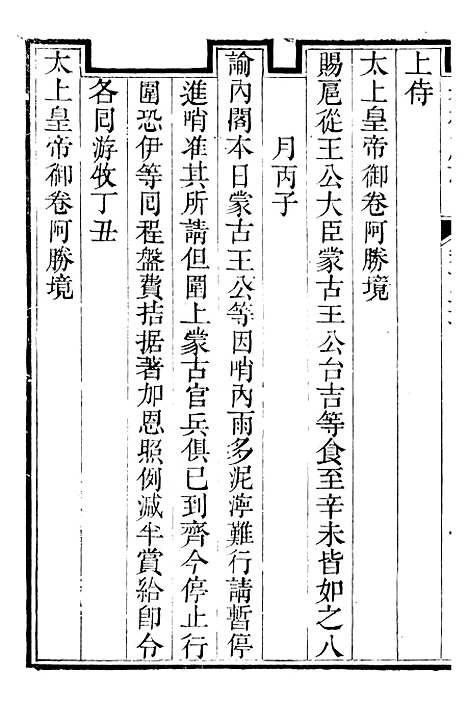 上侍
太上皇帝御卷阿勝境
賜扈從王公大臣蒙古王公台吉等食至辛未皆如之八
月丙子
諭內閣本日蒙古王公等因哨內雨多泥濘難行請暫停
進哨准其所請但圍上蒙古官兵俱已到齊今停止行
圍恐伊等囘程盤費拮据著加恩照例減半賞給卽令
各囘游牧丁丑
太上皇帝御卷阿勝境